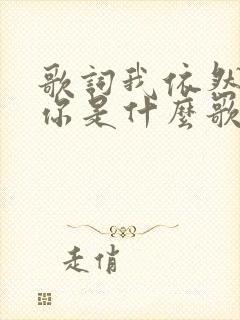 歌詞我依然
你是什麼歌
走俏